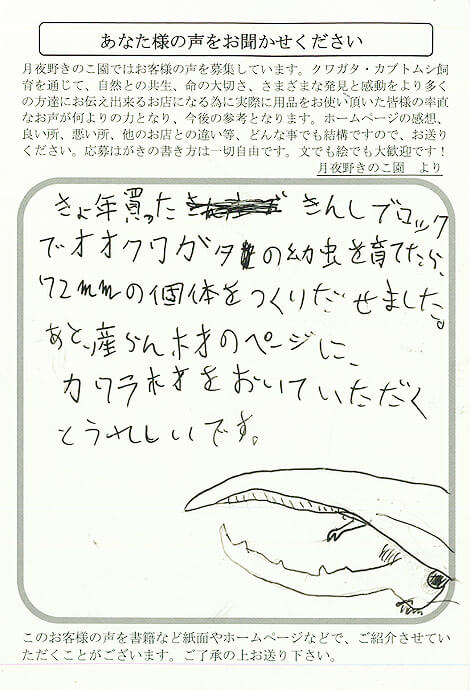 あなた様の声をお聞かせください
月夜野きのこ園ではお客様の声を募集しています。クワガタ・カブトムシ飼
育を通じて、自然との共生、命の大切さ、さまざまな発見と感動をより多く
の方達にお伝え出来るお店になる為に実際に用品をお使い頂いた皆様の率直
なお声が何よりの力となり、今後の参考となります。ホームページの感想、
良い所、悪い所、他のお店との違い等、どんな事でも結構ですので、お送り
ください。応募はがきの書き方は一切自由です。文でも絵でも大歓迎です！
月夜野きのこ園　より
きょ年買った きんしブロック
でオオクワガタの幼虫を育てたら、
72mmの個体をつくりだせました。
あと、産らん木オのページに、
カワラ木オをおいていただく
とうれしいです。
このお客様の声を書籍など紙面やホームページなどで、ご紹介させてい
ただくことがございます。ご了承の上お送り下さい。